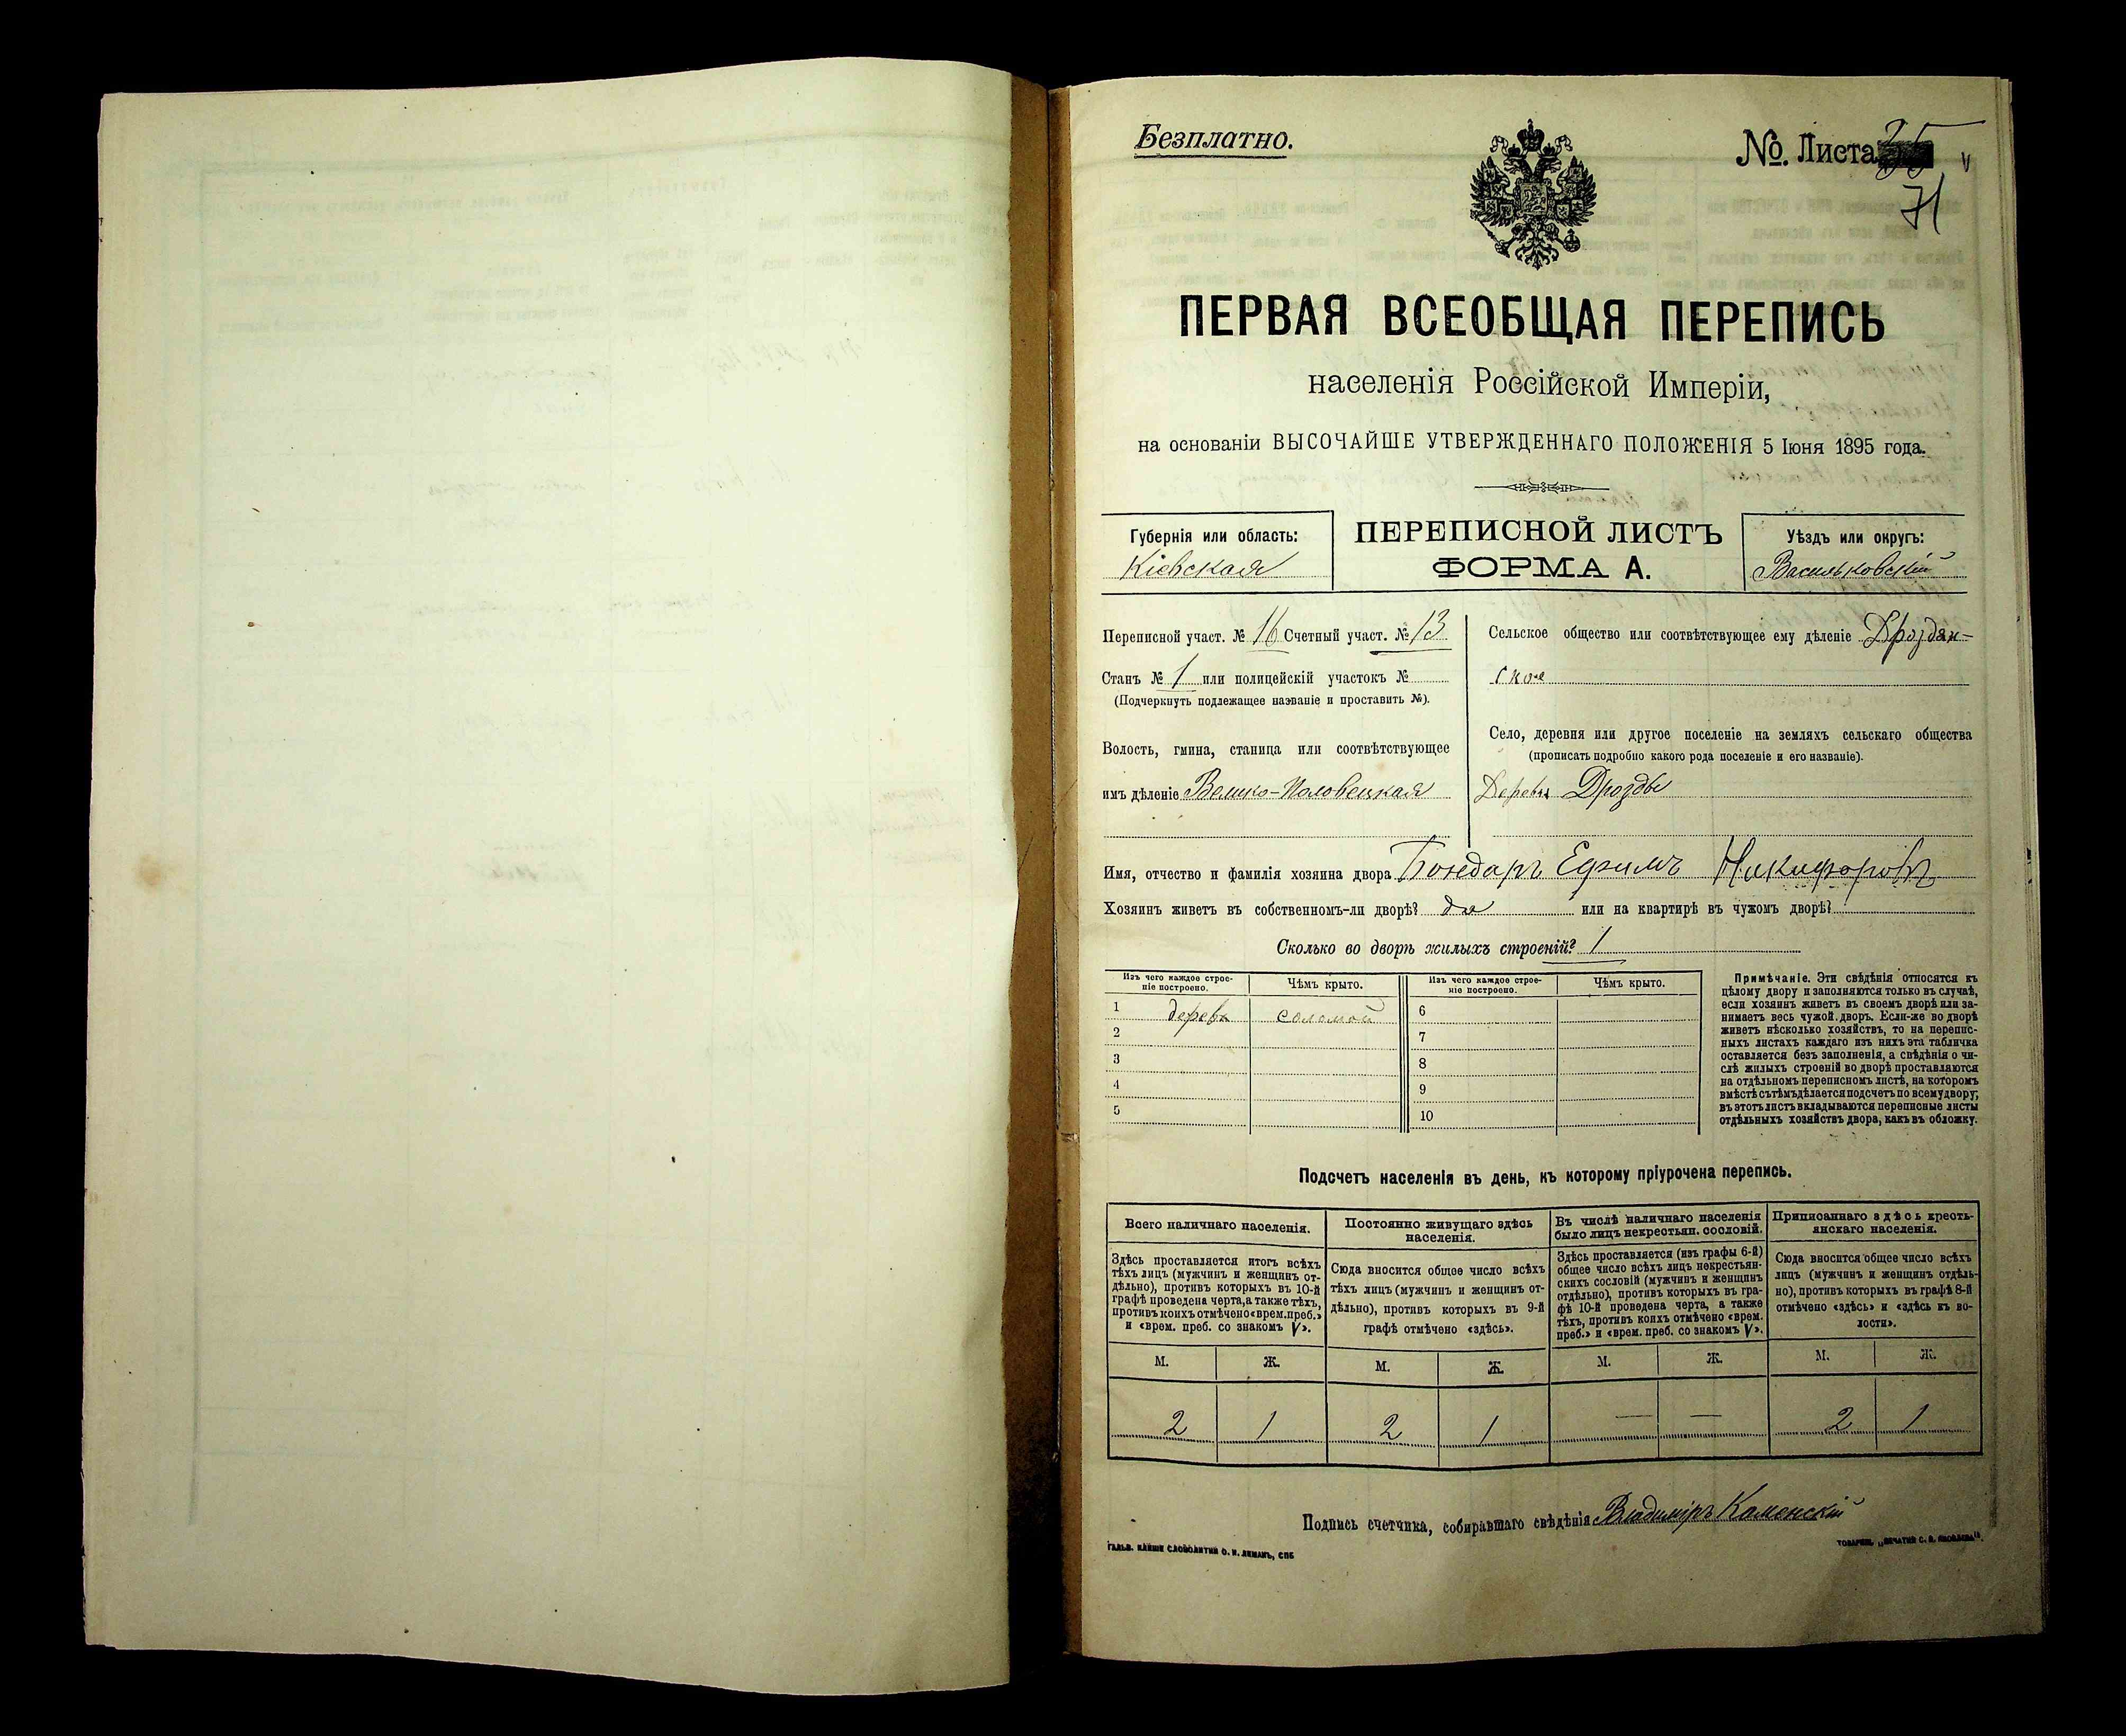 Безплатно.
№. Листа 35
71
ПЕРВАЯ ВСЕОБЩАЯ ПЕРЕПИСЬ
населенія Россійской Имперіи,
на основаніи ВЫСОЧАЙШЕ УТВЕРЖДЕННАГО ПОЛОЖЕНІЯ 5 Іюня 1895 года.
Губернія или область:
Кіевская
ПЕРЕПИСНОЙ ЛИСТЪ
ФОРМА А.
Уѣздъ или округъ:
Васильковскій
Переписной участ. № 16 Счетный участ. № 13
Станъ № 1 или полицейскій участокъ №
(Подчеркнуть подлежащее названіе и проставить №).
Волость, гмина, станица или соотвѣтствующее
имъ дѣленіе Велико-Половецкая
Сельское общество или соотвѣтствующее ему дѣленіе Дроздян-
ское
Село, деревня или другое поселеніе на земляхъ сельскаго общества
(прописать подробно какого рода поселеніе и его названіе).
Деревня Дрозды
Имя, отчество и фамилія хозяина двора Бондарь Ефимъ Никифоровъ
Хозяинъ живетъ въ собственномъ-ли дворѣ? да или на квартирѣ въ чужомъ дворѣ?
Сколько во дворѣ жилыхъ строеній? 1
Изъ чего каждое строе-
ніе построено.
Чѣмъ крыто.
Изъ чего каждое строе-
ніе построено.
Чѣмъ крыто.
1 дерева соломой 6
2 7
3 8
4 9
5 10
Примѣчаніе. Эти свѣдѣнія относятся къ
цѣлому двору и заполняются только въ случаѣ,
если хозяинъ живетъ въ своемъ дворѣ или за-
нимаетъ весь чужой дворъ. Если-же во дворѣ
живетъ нѣсколько хозяйствъ, то на перепис-
ныхъ листахъ каждаго изъ нихъ эта табличка
оставляется безъ заполненія, а свѣдѣнія о чи-
слѣ жилыхъ строеній во дворѣ проставляются
на отдѣльномъ переписномъ листѣ, на которомъ
вмѣстѣ съ тѣмъ дѣлается подсчетъ по всему двору;
въ этотъ листъ вкладываются переписные листы
отдѣльныхъ хозяйствъ двора, какъ въ обложку.
Подсчетъ населенія въ день, къ которому пріурочена перепись.
Всего наличнаго населенія.
Здѣсь проставляется итогъ всѣхъ
тѣхъ лицъ (мужчинъ и женщинъ от-
дѣльно), противъ которыхъ въ 10-й
графѣ проведена черта, а также тѣхъ,
противъ коихъ отмѣчено «врем. преб.»
и «врем. преб. со знакомъ V».
Постоянно живущаго здѣсь
населенія.
Сюда вносится общее число всѣхъ
тѣхъ лицъ (мужчинъ и женщинъ от-
дѣльно), противъ которыхъ въ 9-й
графѣ отмѣчено «здѣсь».
Въ числѣ наличнаго населенія
было лицъ некрестьян. сословій.
Здѣсь проставляется (изъ графы 6-й)
общее число всѣхъ лицъ некрестьян-
скихъ сословій (мужчинъ и женщинъ
отдѣльно), противъ которыхъ въ гра-
фѣ 10-й проведена черта, а также
тѣхъ, противъ коихъ отмѣчено «врем.
преб.» и «врем. преб. со знакомъ V».
Приписаннаго здѣсь кресть-
янскаго населенія.
Сюда вносится общее число всѣхъ
лицъ (мужчинъ и женщинъ отдѣль-
но), противъ которыхъ въ графѣ 8-й
отмѣчено «здѣсь» и «здѣсь въ во-
лости».
М. Ж. М. Ж. М. Ж. М. Ж.
2 1 2 1 — — 2 1
Подпись счетчика, собиравшаго свѣдѣнія Владиміръ Каменскій
ГАЛЬВ. КЛИШЕ СЛОВОЛИТНИ О. И. ЛЕМАНЪ, СПБ
ТОВАРИЩ. „ПЕЧАТНЯ С. П. ЯКОВЛЕВА".